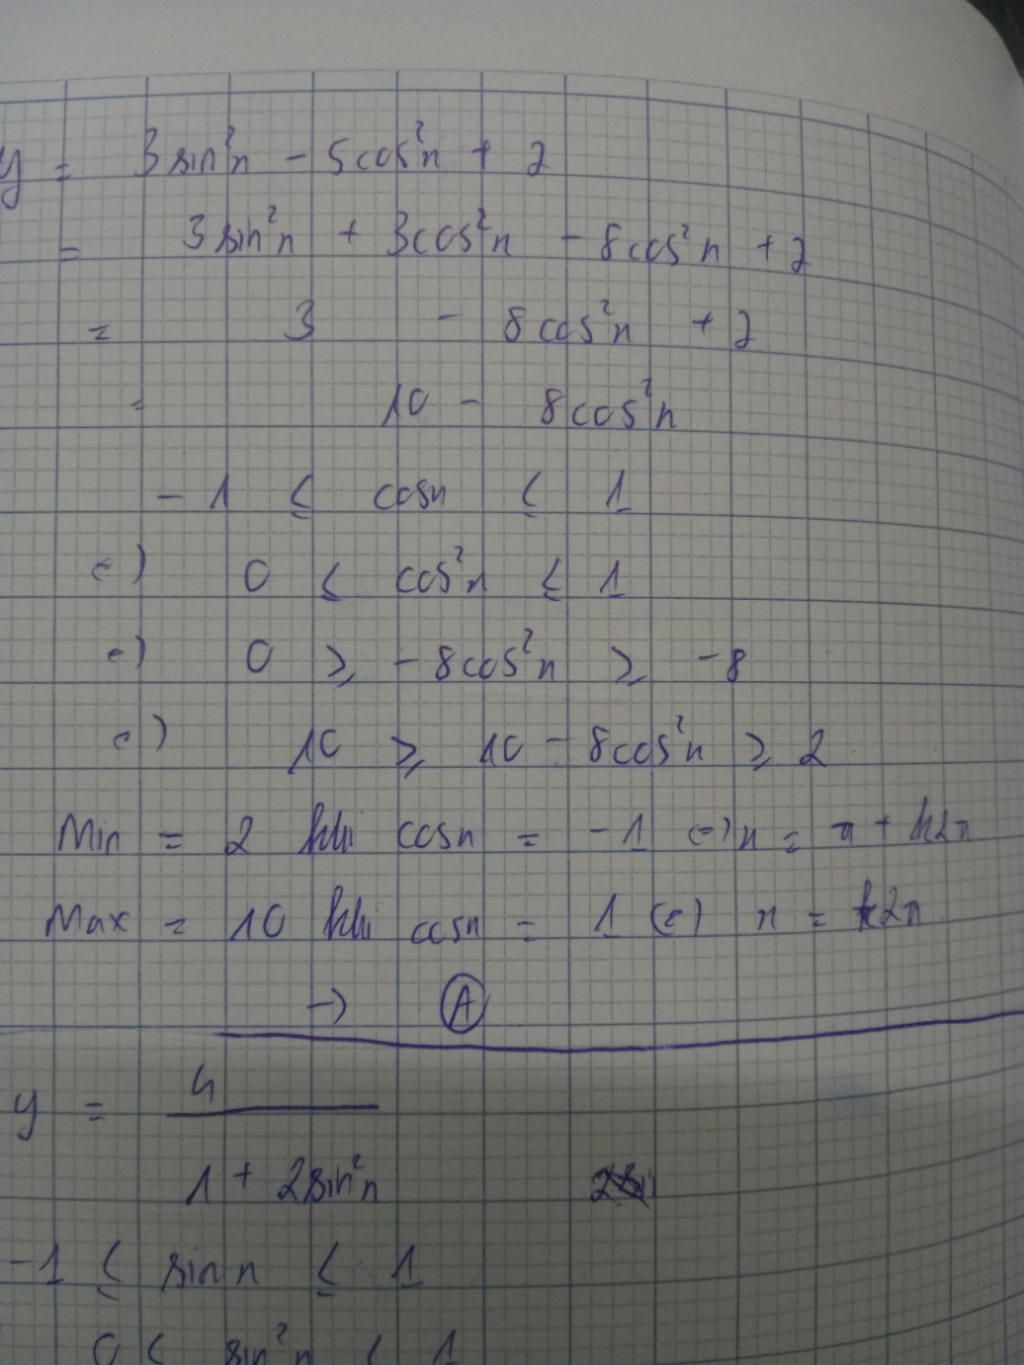 y = 3sin²x - 5cos²x + 2
= 3sin²x + 3cos²x - 8cos²x + 2
= 3 - 8cos²x + 2
= 10 - 8cos²x
-1 ≤ cosx ≤ 1
(=) 0 ≤ cos²x ≤ 1
(=) 0 ≥ -8cos²x ≥ -8
(=) 10 ≥ 10 - 8cos²x ≥ 2
Min = 2 khi cosx = -1 (=) x = π + k2π
Max = 10 khi cosx = 1 (=) x = k2π
→ A
y = 4
1 + 2sin²x
-1 ≤ sinx ≤ 1
0 ≤ sin²x ≤ 1